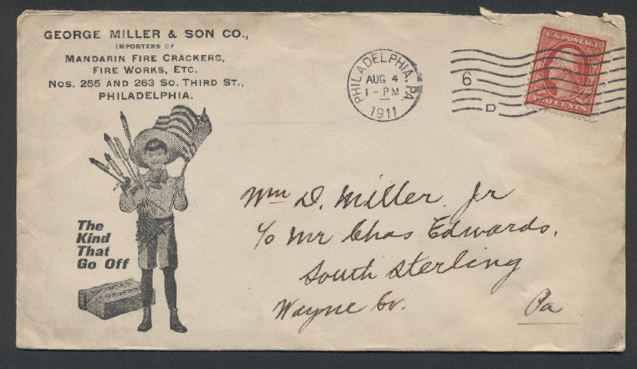 GEORGE MILLER & SON CO.,
IMPORTERS OF
MANDARIN FIRE CRACKERS,
FIRE WORKS, ETC.
NOS. 255 AND 263 SO. THIRD ST.,
PHILADELPHIA.
PHILADELPHIA, PA.
AUG 4
1-PM
1911
6
D
U.S. POSTAGE
2 CENTS 2
The
Kind
That
Go Off
Wm D. Miller Jr
c/o Mr Chas Edwards,
South Sterling
Wayne Co. Pa